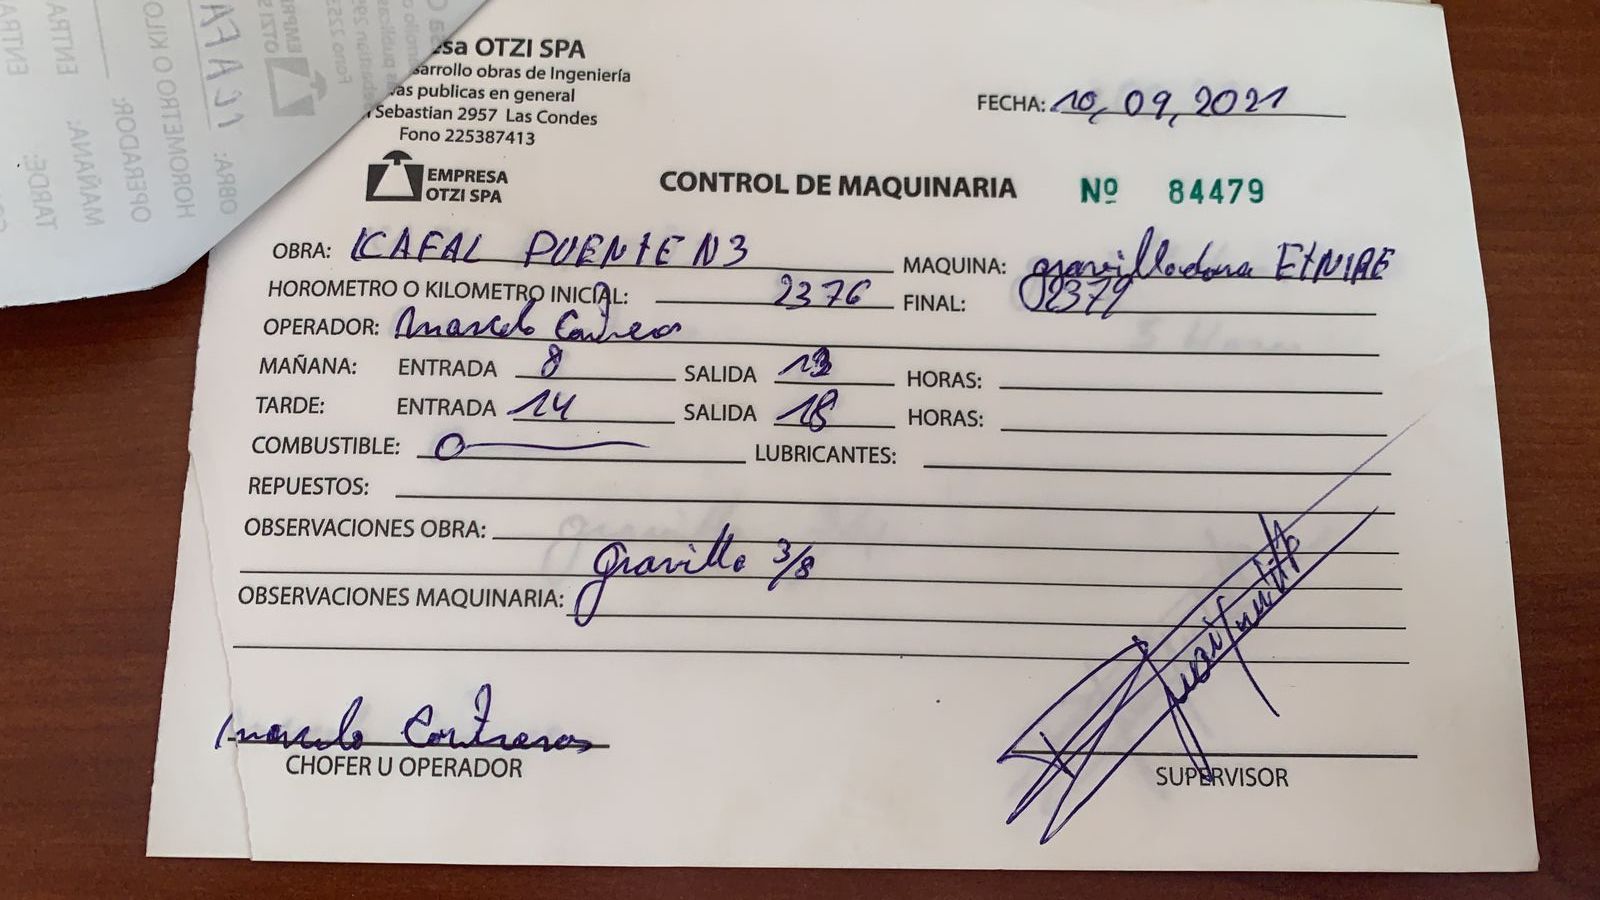 esa OTZI SPA
sarrollo obras de Ingeniería
vas publicas en general
Sebastian 2957 Las Condes
Fono 225387413
EMPRESA
OTZI SPA
FECHA: 10, 09, 2021
CONTROL DE MAQUINARIA Nº 84479
OBRA: PUENTE N3 MAQUINA: gravilladora
HOROMETRO O KILOMETRO INICIAL: 2376 FINAL: 2379
OPERADOR: Marcelo Contreras
MAÑANA: ENTRADA 8 SALIDA 13 HORAS:
TARDE: ENTRADA 14 SALIDA 18 HORAS:
COMBUSTIBLE: 0 LUBRICANTES:
REPUESTOS:
OBSERVACIONES OBRA:
gravilla 3/8
OBSERVACIONES MAQUINARIA:
Marcelo Contreras
CHOFER U OPERADOR
SUPERVISOR
OBRA:
HOROMETRO O KILO
OPERADOR:
MAÑANA: ENTRA
TARDE: ENTRA